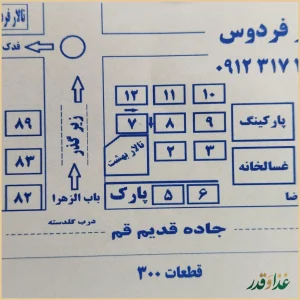 تالار فر
ر فردوس
۰۹۱۲ ۳۱۷ ۹
فدک
زیر گذر
۱۲ ۱۱ ۱۰
پارکینگ
۷ ۸ ۹
۸۹
تالار بهشت
۲ ۳
غسالخانه
۸۳
باب الزهرا
پارک ۵ ۶
ضا
۸۲
درب گلدسته
جاده قدیم قم
قطعات ۳۰۰
غذا و قدر